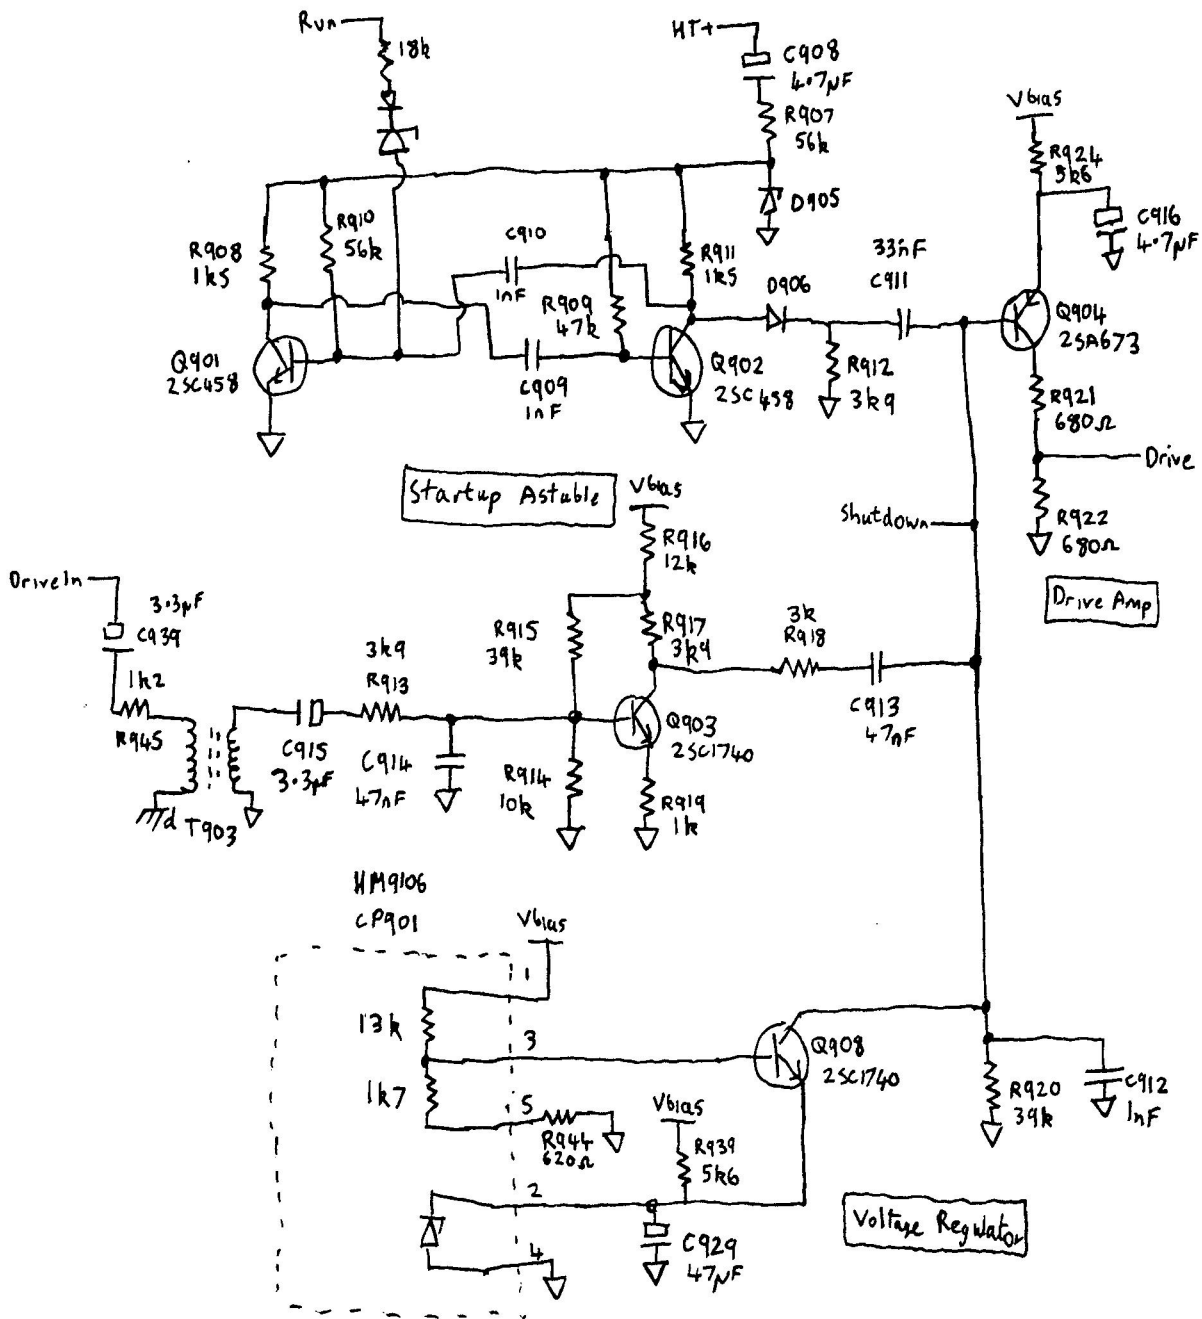 Run
18k
HT+
C908
4.7µF
R907
56k
Vbias
R924
3k6
D905
C916
4.7µF
R908
1k5
R910
56k
C910
1nF
R911
1k5
R909
47k
33nF
C911
D906
Q904
2SA673
Q901
2SC458
C909
1nF
Q902
2SC458
R912
3k9
R921
680Ω
Drive
R922
680Ω
Startup Astable
Shutdown
Drive Amp
Vbias
R916
12k
DriveIn
3.3µF
C939
1k2
R945
T903
C915
3.3µF
3k9
R913
C914
47nF
R915
39k
R914
10k
R917
3k9
Q903
2SC1740
R919
1k
3k
R918
C913
47nF
HM9106
CP901
Vbias
1
13k
3
1k7
5
R944
620Ω
Vbias
R939
5k6
2
4
C929
47µF
Q908
2SC1740
R920
39k
C912
1nF
Voltage Regulator